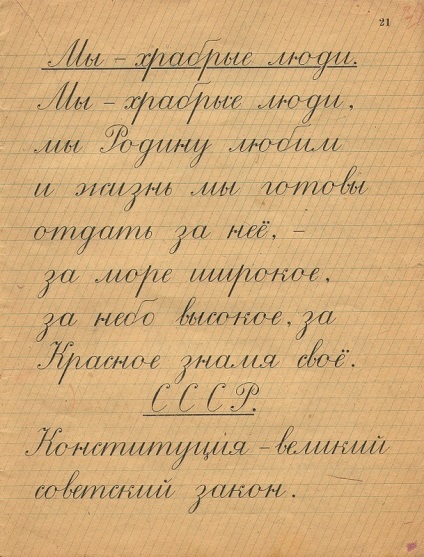 21
Мы – храбрые люди.
Мы – храбрые люди,
мы Родину любим
и жизнь мы готовы
отдать за неё, –
за море широкое,
за небо высокое, за
Красное знамя своё.
СССР.
Конституция – великий
советский закон.